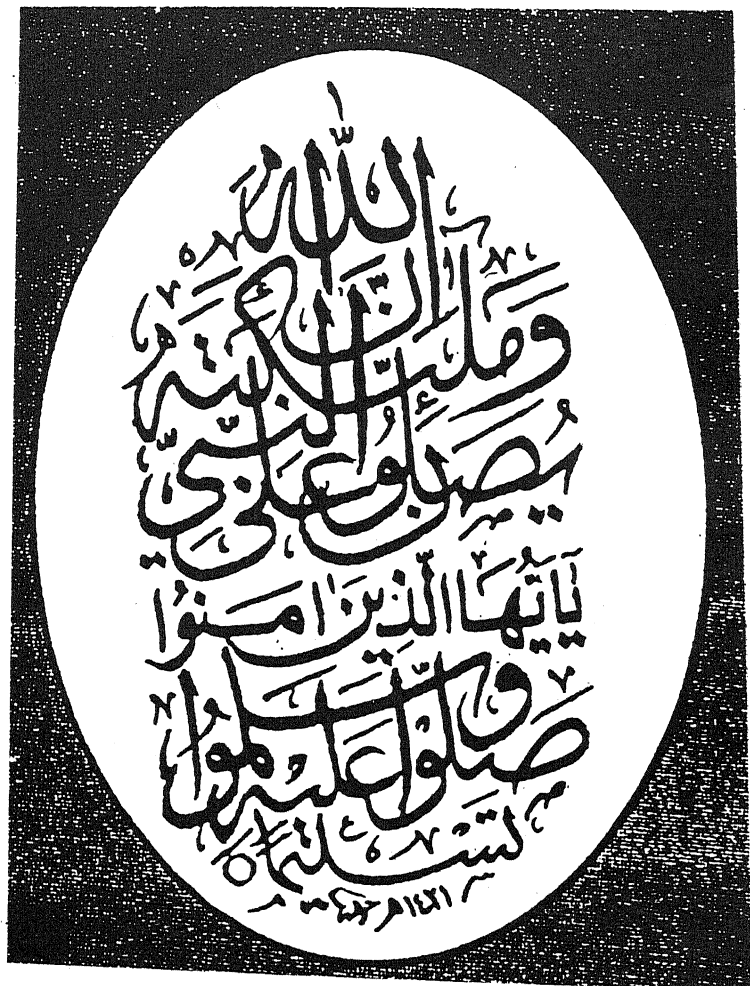 إنّ الله
وملئكته
يصلون على النبي
يٰأيّها الّذين اٰمنوا
صلّوا عليه وسلّموا
تسليما